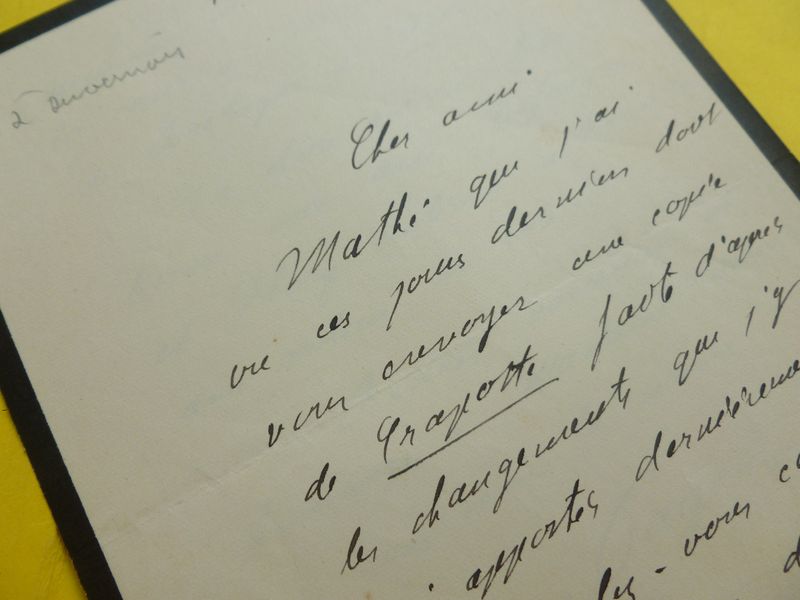 à Duvernois
Cher ami
Mathé que j'ai
vu ces jours derniers doit
vous envoyer une copie
de Crapotte faite d'après
les changements que j'y
ai apportés dernièreme
vous